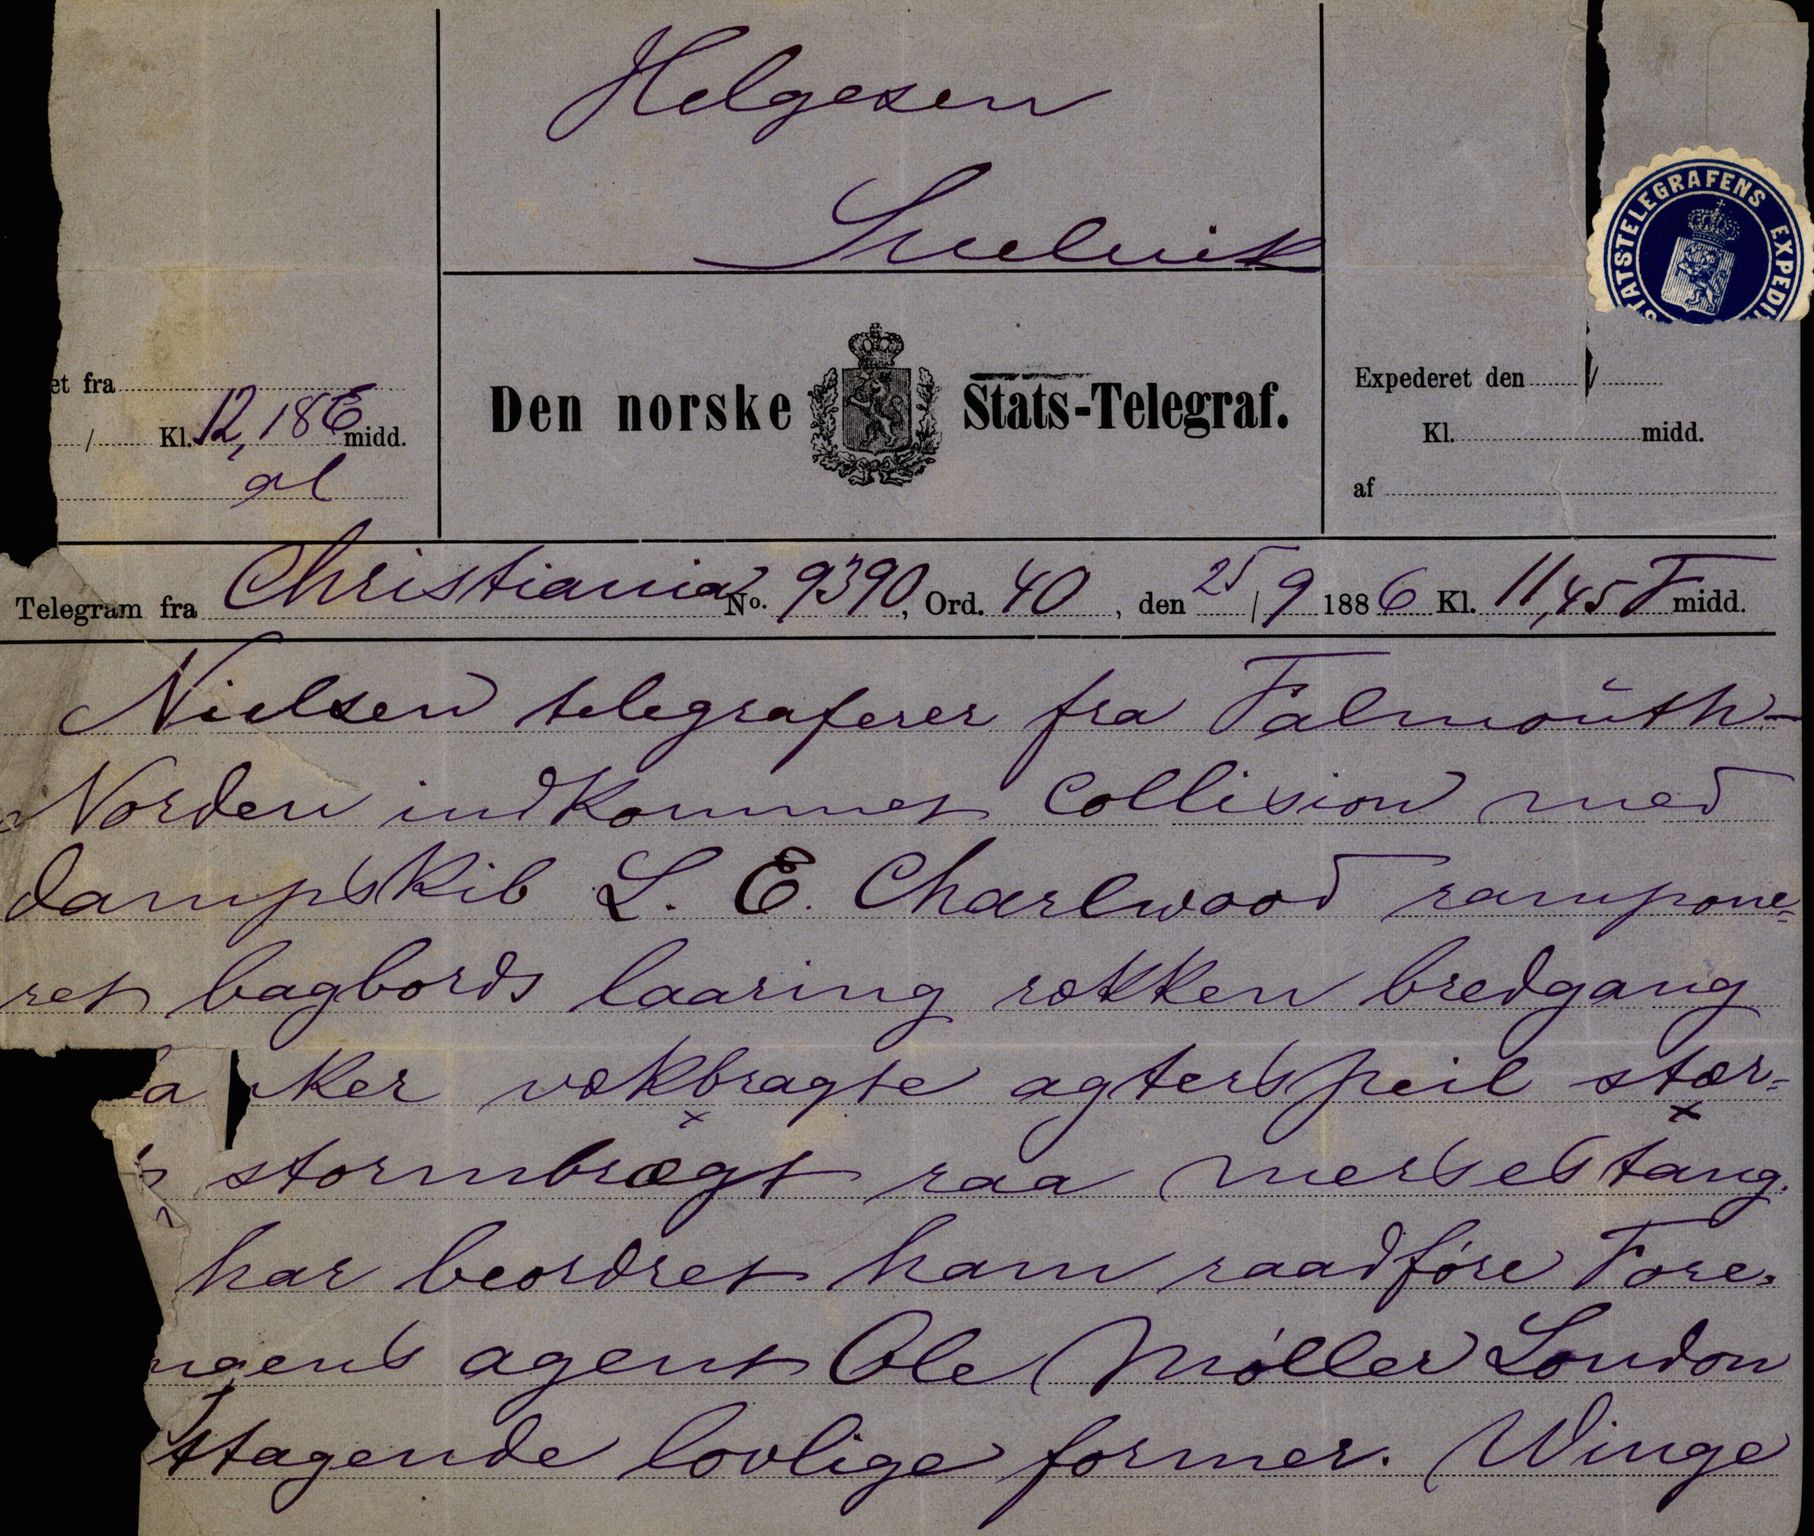 Helgesen
Svelvik
STATSTELEGRAFENS EXPEDI
et fra
/ Kl. 12,18 E midd.
Den norske Stats-Telegraf.
Expederet den /
Kl. midd.
af
Telegram fra Christiania No. 9390, Ord. 40, den 25/9 1886 Kl. 11,45 F midd.
Nielsen telegraferer fra Falmouth
Norden indkommet Collision med
dampskib L. E. Charlwood rampone=
ret bagbords laaring rækken bredgang
ker vækbragte agterspeil stær=
stormbrægt raa mersestang.
har beordret ham raadføre Fore=
ngens agent Ole Møller London
ttagende lovlige former. Winge